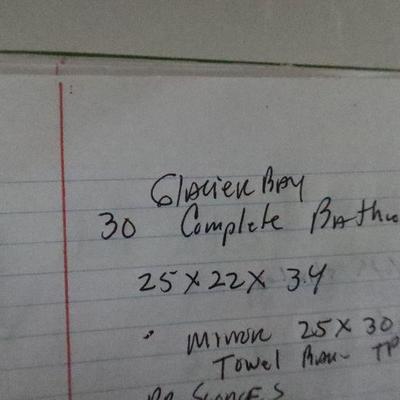 Glacier Bay
30 Complete Bath
25 x 22 x 34
• Mirror 25 x 30
Towel Bar - TP